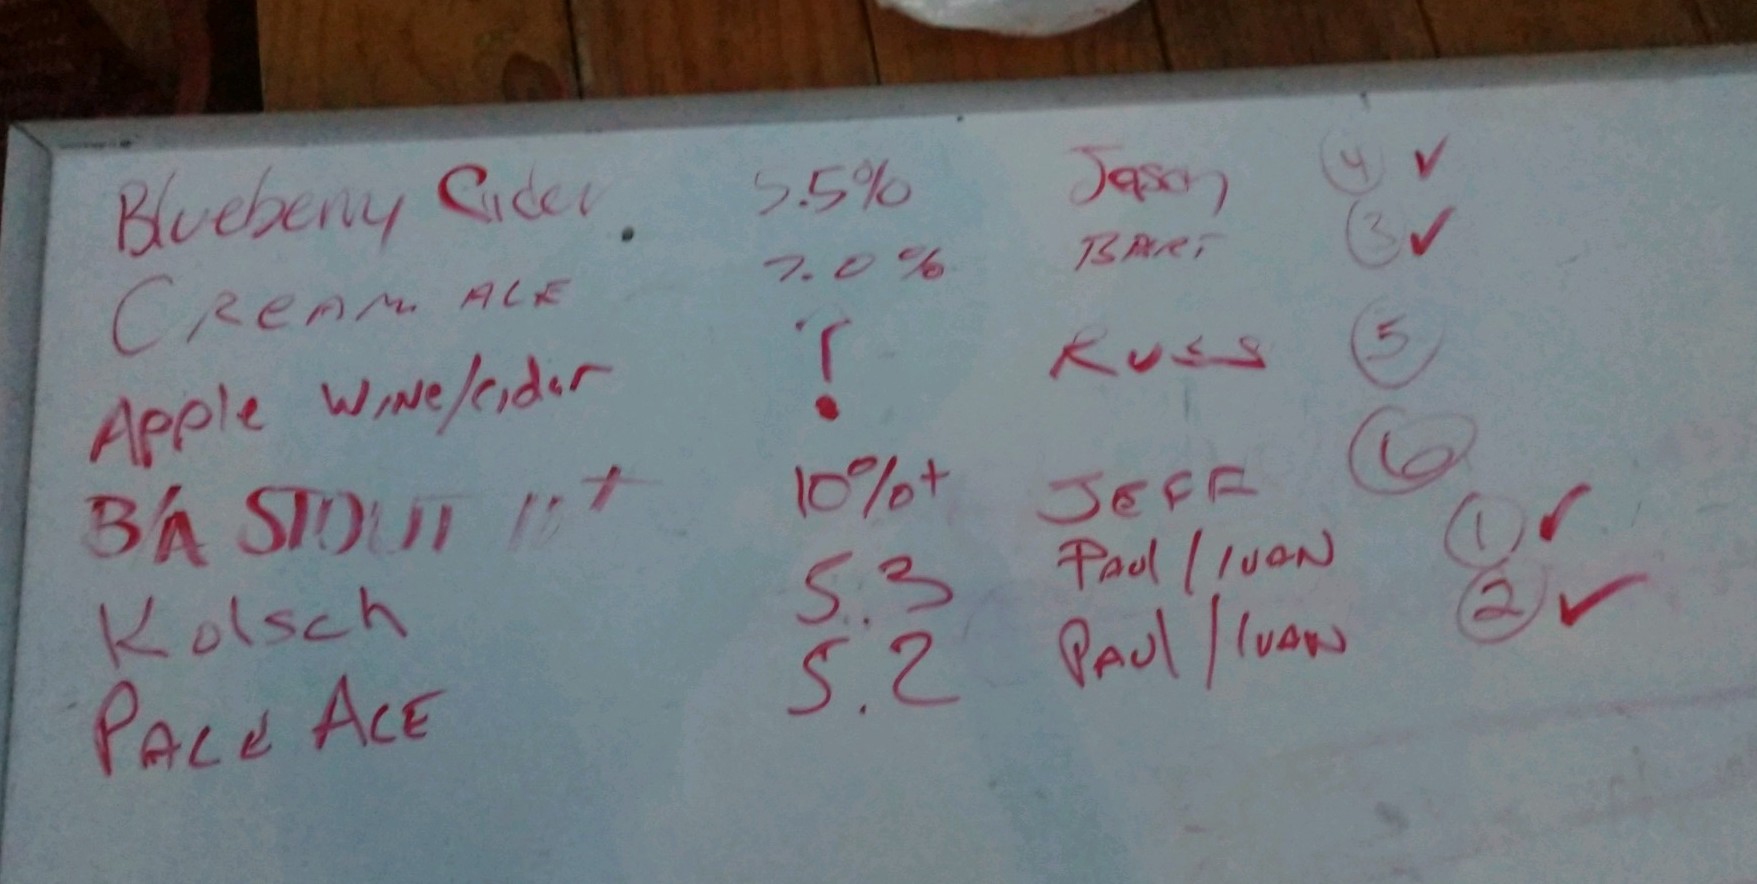 Blueberry Cider 5.5% Jason 4 ✓
CREAM ALE 7.0% BART 3 ✓
Apple WINE/cider ? RUSS 5
B/A STOUT 10%+ JEFF 6
Kolsch 5.3 PAUL/IVAN 1 ✓
PALE ALE 5.2 PAUL/IVAN 2 ✓